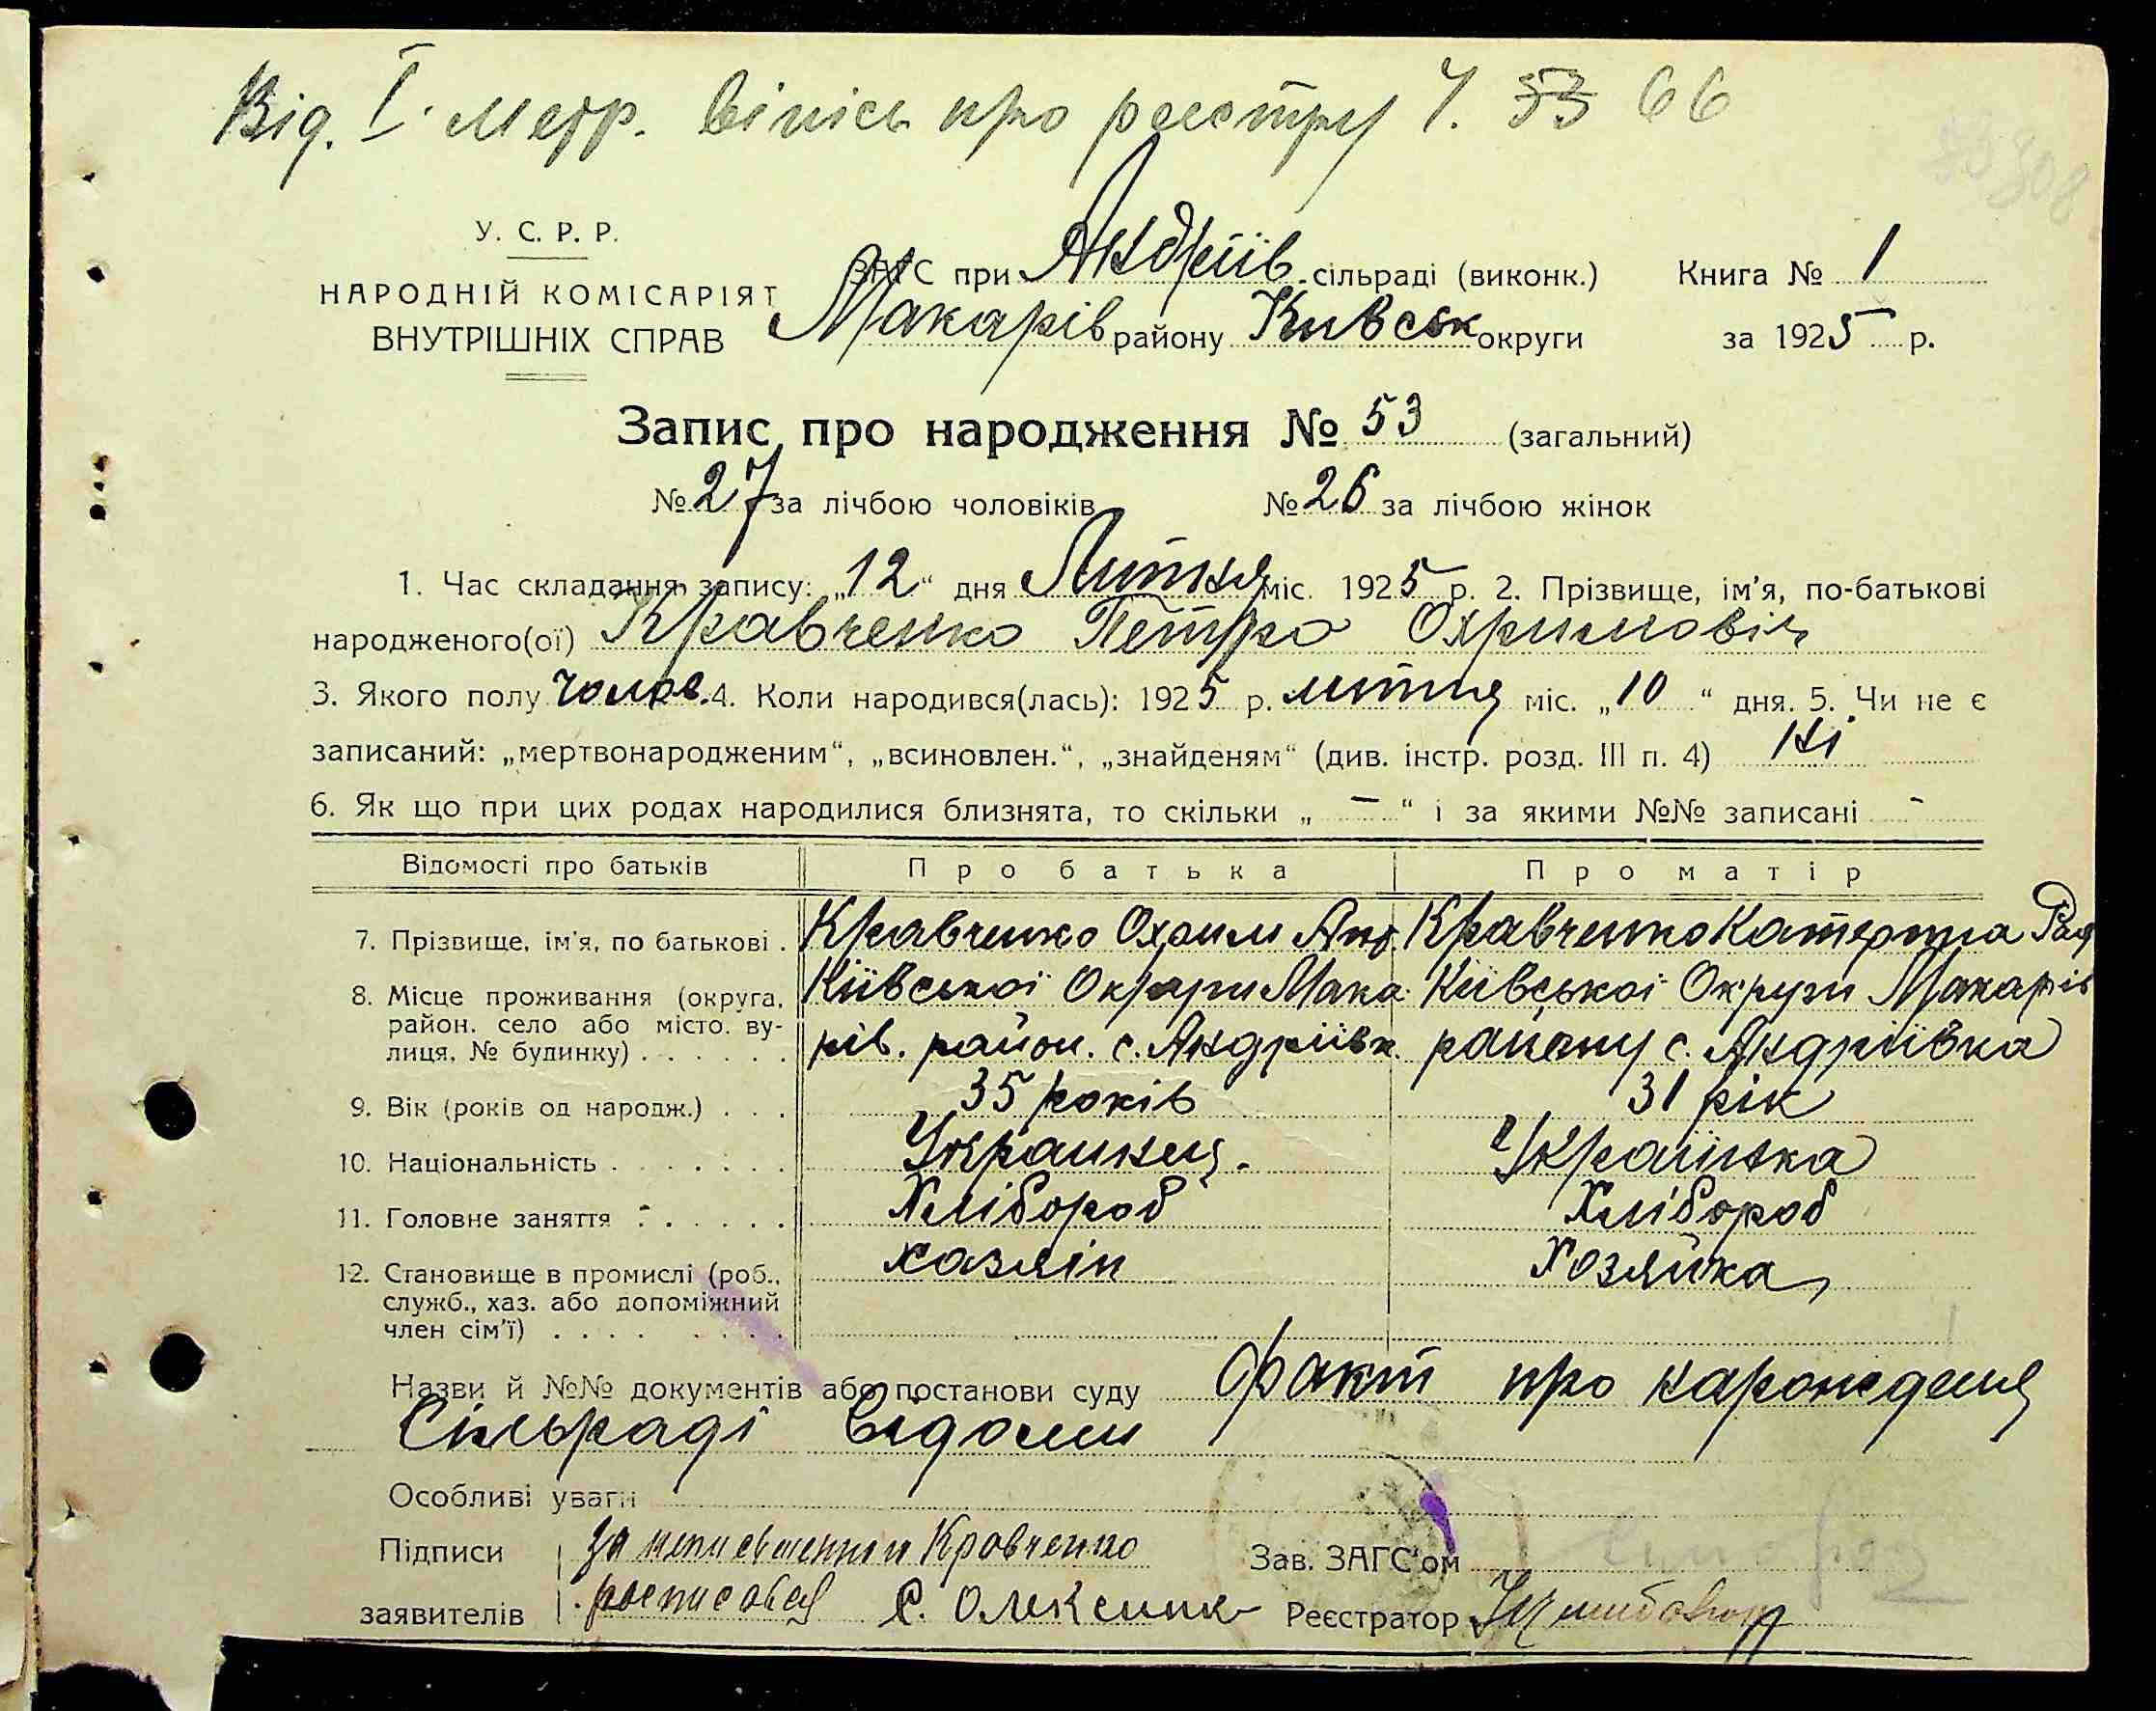 Від. I. Метр. випісь про реєстру Ч. 53 66
У. С. Р. Р.
НАРОДНІЙ КОМІСАРІЯТ
ВНУТРІШНІХ СПРАВ
ЗАГС при Андріїв. сільраді (виконк.)
Макарів району Київськ округи
Книга № 1
за 1925 р.
Запис про народження № 53 (загальний)
№ 27 за лічбою чоловіків № 26 за лічбою жінок
1. Час складання запису: „12“ дня Литня міс. 1925 р. 2. Прізвище, ім'я, по-батькові
народженого(ої) Кравченко Петро Охримовіч
3. Якого полу чолов. 4. Коли народився(лась): 1925 р. литня міс. „10“ дня. 5. Чи не є
записаний: „мертвонародженим“, „всиновлен.“, „знайденям“ (див. інстр. розд. III п. 4) Ні
6. Як що при цих родах народилися близнята, то скільки „ — “ і за якими №№ записані -
Відомості про батьків Про батька Про матір
7. Прізвище, ім'я, по батькові . Кравченко Охрим Анд. Кравченко Катерина
8. Місце проживання (округа, район, село або місто, вулиця, № будинку) . . . . . .
Київської Округи Мака Київської Округи Макарів
рів. район. с. Андріївк. району с. Андріївка
9. Вік (років од народж.) . . . 35 років 31 рік
10. Національність . . . . . . . Українец. Українка
11. Головне заняття . . . . . . Хлібороб Хлібороб
12. Становище в промислі (роб., служб., хаз. або допоміжний член сім'ї) . . . . . . . .
хазяін Хозяйка
Назви й №№ документів або постанови суду Факт про нарождення
Сільраді відомий
Особливі уваги
Підписи заявителів
За неписьменний Кравченко
росписався С. Олексиш
Зав. ЗАГС'ом
Реєстратор